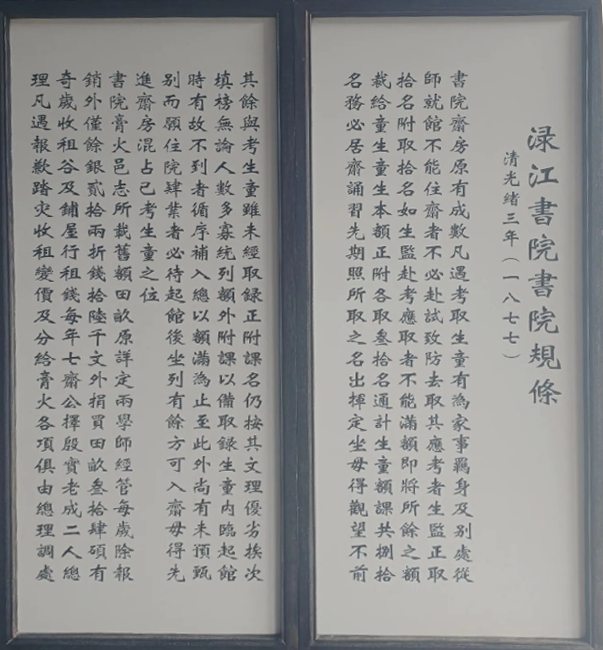 渌江書院書院規條
清光緒三年(一八七七)
書院齋房原有成數凡遇考取生童有爲家事羈身及別處從
師就館不能住齋者不必赴試致防去取其應考者生監正取
拾名附取拾名如生監赴考應取者不能滿額即將所餘之額
裁給童生童生本額正附各取叁拾名通計生童額課共捌拾
名務必居齋誦習先期照所取之名出榟定坐毋得觀望不前
其餘與考生童雖未經取録正附課名仍按其文理優劣挨次
填榜無論人數多寡統列額外附課以備取録生童内臨起館
時有故不到者循序補入總以額滿為止至此外尚有未預甄
別而願住院肄業者必待起館後坐列有餘方可入齋毋得先
進齋房混占已考生童之位
書院膏火邑志所裁舊額田畝原詳定兩學師經管每歲除報
銷外僅餘銀貳拾兩折錢拾陸千文外捐買田畝叁拾肆碩有
奇歲收租谷及鋪屋行租錢每年七齋公擇殷實老成二人總
理凡遇報歉踏灾收租變價及分給膏火各項俱由總理調處